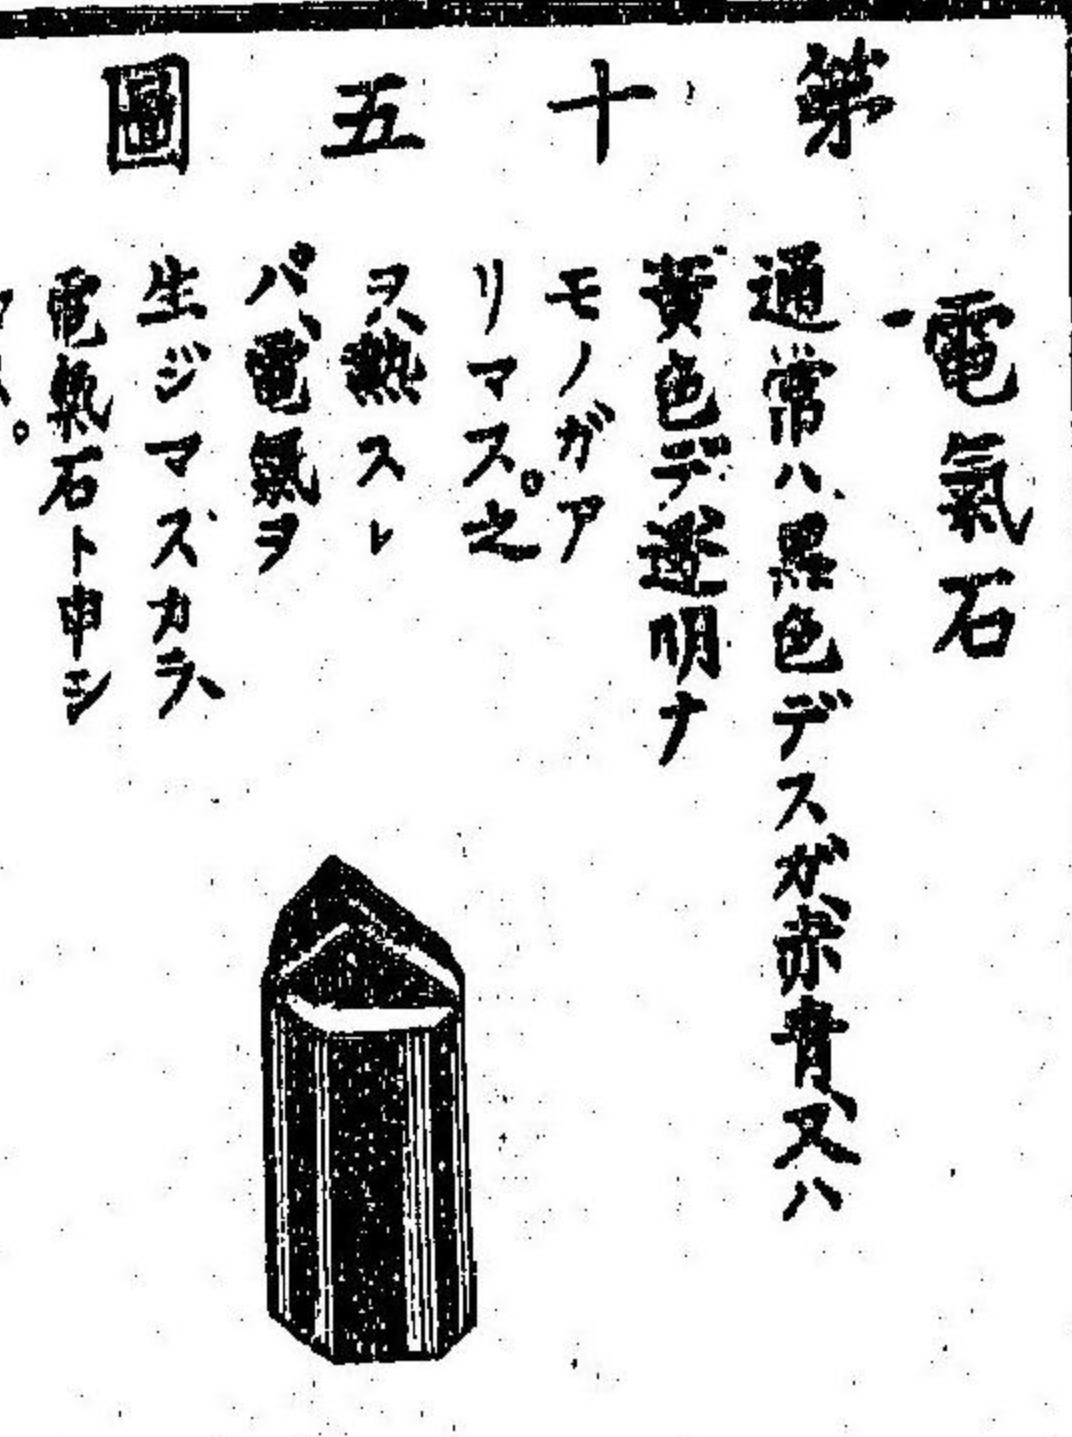 第十五圖
電氣石
通常ハ、黒色デスガ、赤青、又ハ
黄色デ透明ナ
モノガア
リマス。之
ヲ、熱スレ
バ、電氣ヲ
生ジマスカラ、
電氣石ト申シ